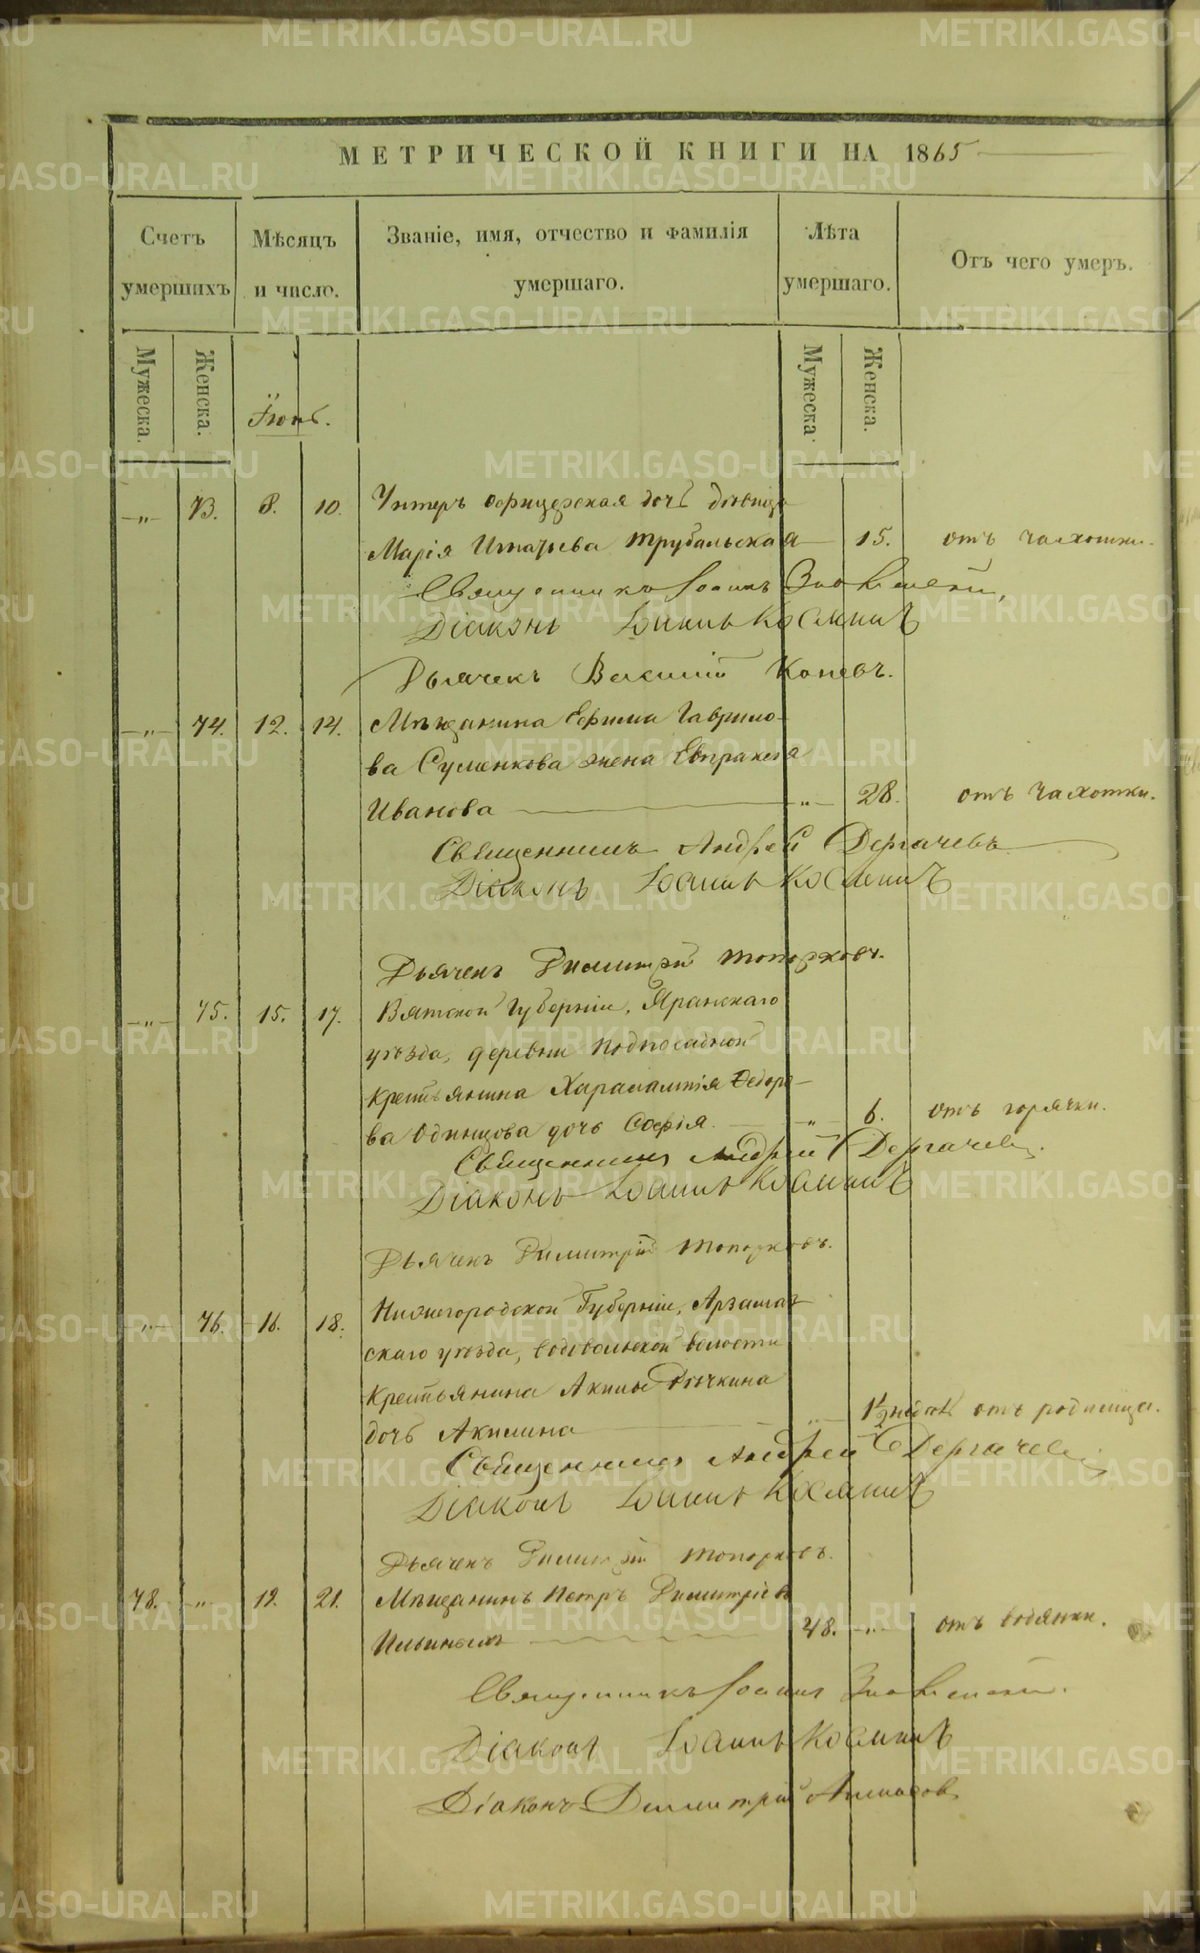 METRIKI.GASO-URAL.RU
МЕТРИЧЕСКОЙ КНИГИ НА 1865
Счетъ умершихъ
Мѣсяцъ и число.
Званіе, имя, отчество и фамилія умершаго.
Лѣта умершаго.
Отъ чего умеръ.
Мужеска.
Женска.
Мужеска.
Женска.
Іюнь.
„ 73. 8. 10. Унтеръ офицерская дочь дѣвица
Марія Игнатьева Трубальская 15. отъ чахотки.
Священникъ Іоаннъ
Діаконъ Іоаннъ Косминъ
Дьячекъ Василій Коневъ.
„ 74. 12. 14. Мѣщанина Ефима Гаврило-
ва Суменкова жена Евпраксія
Иванова „ 28. отъ чахотки.
Священникъ Андрей Дергачевъ
Діаконъ Іоаннъ Косминъ
Дьячекъ Димитрій Топорковъ.
„ 75. 15. 17. Вятской Губерніи, Яранскаго
уѣзда, деревни Подпосадной
крестьянина Харалампія Ѳедоро-
ва Одинцова дочь Софія. „ 6. отъ горячки.
Священникъ Андрей Дергачевъ.
Діаконъ Іоаннъ Косминъ
Дьячекъ Димитрій Топорковъ.
„ 76. 16. 18. Нижегородской Губерніи, Арзамаз-
скаго уѣзда, волости
крестьянина Акима Рычкина
дочь Акилина „ 1½ недѣл. отъ родимца.
Священникъ Андрей Дергачевъ
Діаконъ Іоаннъ Косминъ
Дьячекъ Димитрій Топорковъ.
78. „ 19. 21. Мѣщанинъ Петръ Димитріевъ
Ильиныхъ 48. „ отъ водянки.
Священникъ Іоаннъ
Діаконъ Іоаннъ Косминъ
Діаконъ Димитрій